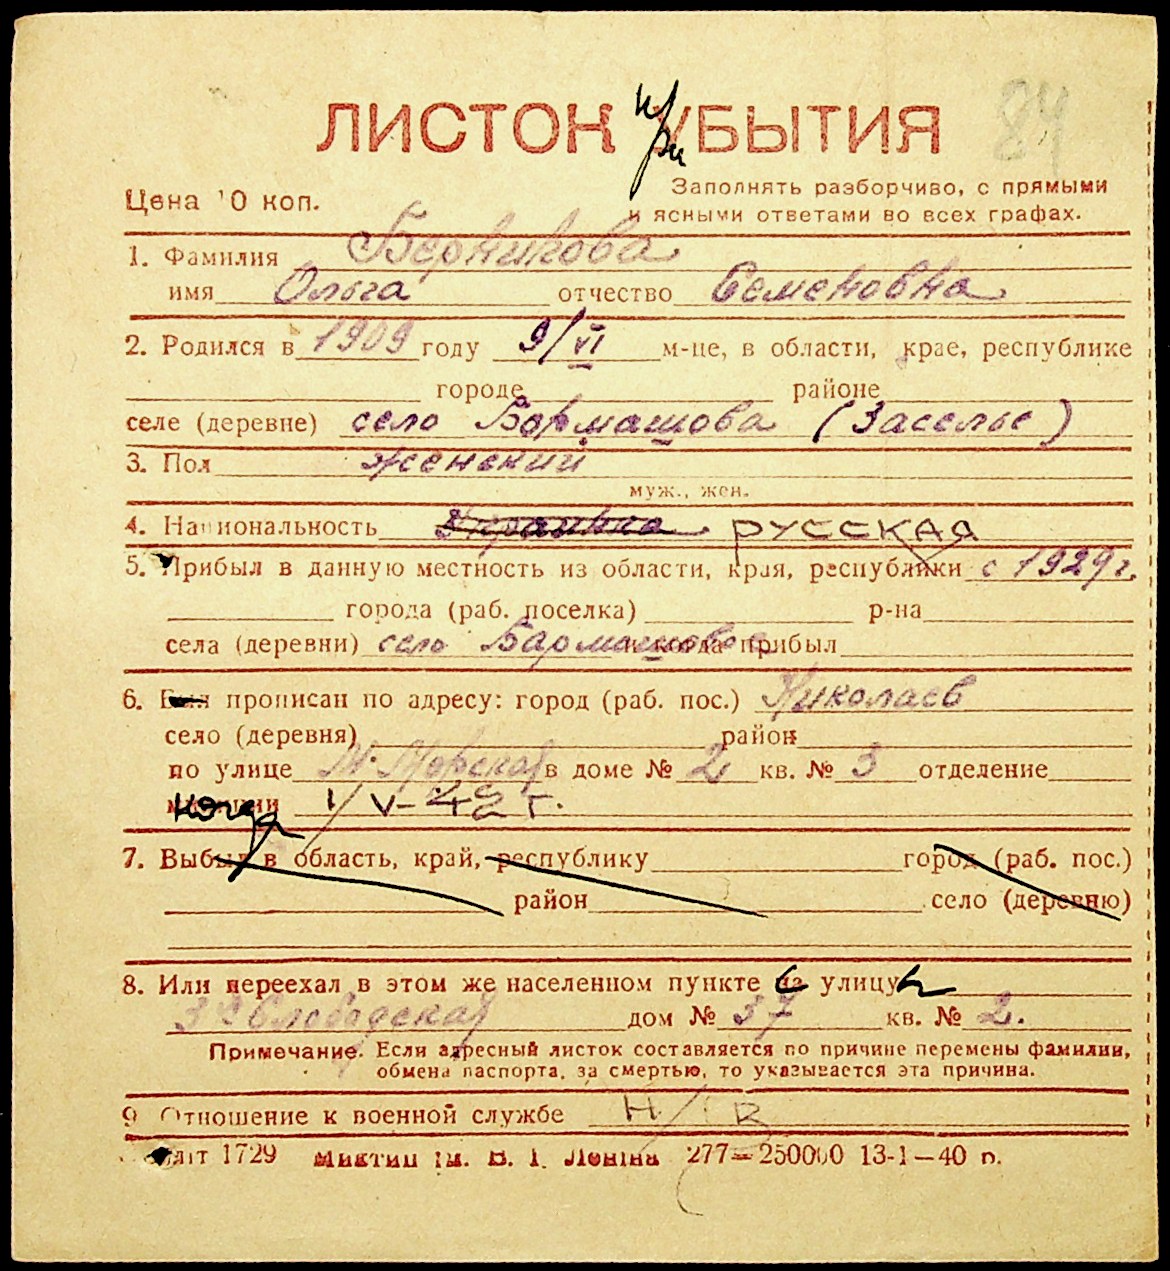 84
ЛИСТОК УБЫТИЯ
при
Цена 10 коп.
Заполнять разборчиво, с прямыми
и ясными ответами во всех графах.
1. Фамилия Берникова
имя Ольга отчество Семеновна
2. Родился в 1909 году 9/VI м-це, в области, крае, республике
городе районе
селе (деревне) село Бормашова (Заселье)
3. Пол женский
муж., жен.
4. Национальность Украинка РУССКАЯ
5. Прибыл в данную местность из области, края, республики с 1929 г.
города (раб. поселка) р-на
села (деревни) село Бармашово и когда прибыл
6. Был прописан по адресу: город (раб. пос.) Николаев
село (деревня) район
по улице М. Морской в доме № 2 кв. № 3 отделение
милиции когда 1/V-42 г.
7. Выбыл в область, край, республику город (раб. пос.)
район село (деревню)
8. Или переехал в этом же населенном пункте на с улицу
3 Слободская дом № 37 кв. № 2.
Примечание. Если адресный листок составляется по причине перемены фамилии,
обмена паспорта, за смертью, то указывается эта причина.
9 Отношение к военной службе Н/В
1729 277—250000 13-1—40 р.